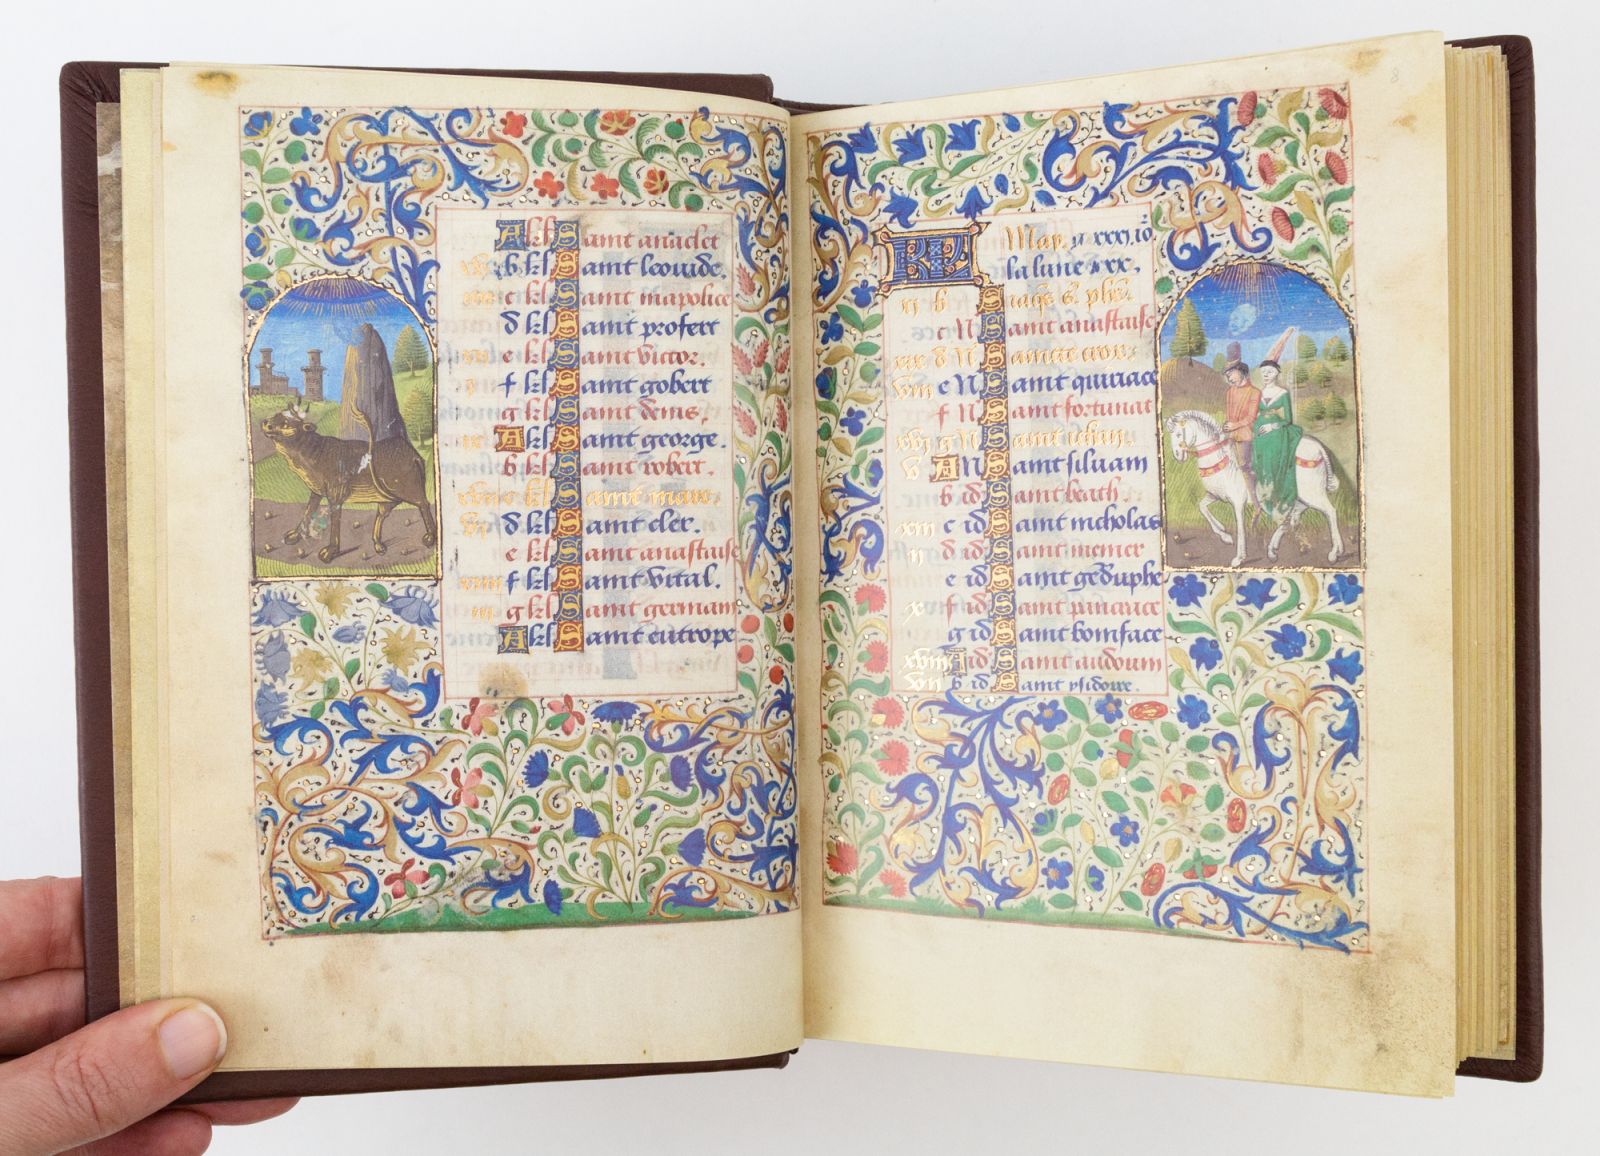 A kl Saint anaclet
b kl Saint leonide.
c kl Saint mapolice
d kl Saint profert
e kl Saint victor.
f kl Saint gobert
g kl Saint denis.
A kl Saint george.
b kl Saint robert.
c kl Saint marc.
d kl Saint cler.
e kl Saint anastaise
f kl Saint vital.
g kl Saint germain
A kl Saint eutrope
8
KL May. a xxxi. io.
la lune xxx.
xi b Siaqs s. phe.
c N Saint anastaise
xix d N Sainte croix
viii e N Saint quiriace
f N Saint fortunat
xvi g N Saint iehan.
v A N Saint siluain
b id Saint beath
xiii c id Saint nicholas
ii d id Saint memer
e id Saint geduphe
x f id Saint pancrace
g id Saint boniface
xviii A id Saint audouin
vii b id Saint ysidoire.